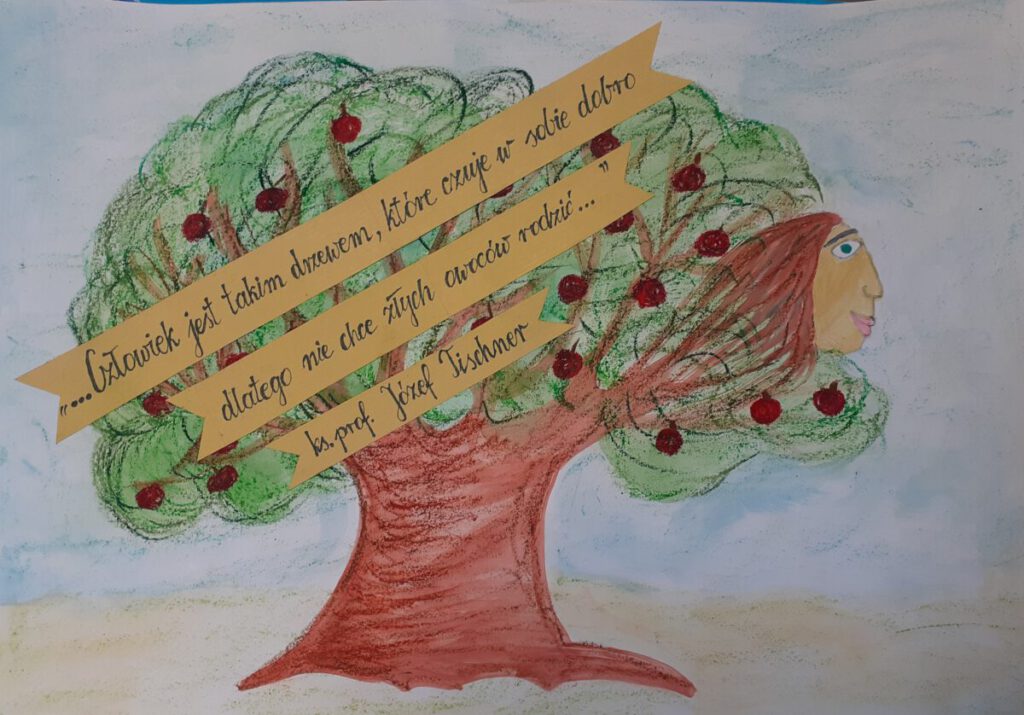 „...Człowiek jest takim drzewem, które czuje w sobie dobro
dlatego nie chce złych owoców rodzić..."
ks. prof. Józef Tischner